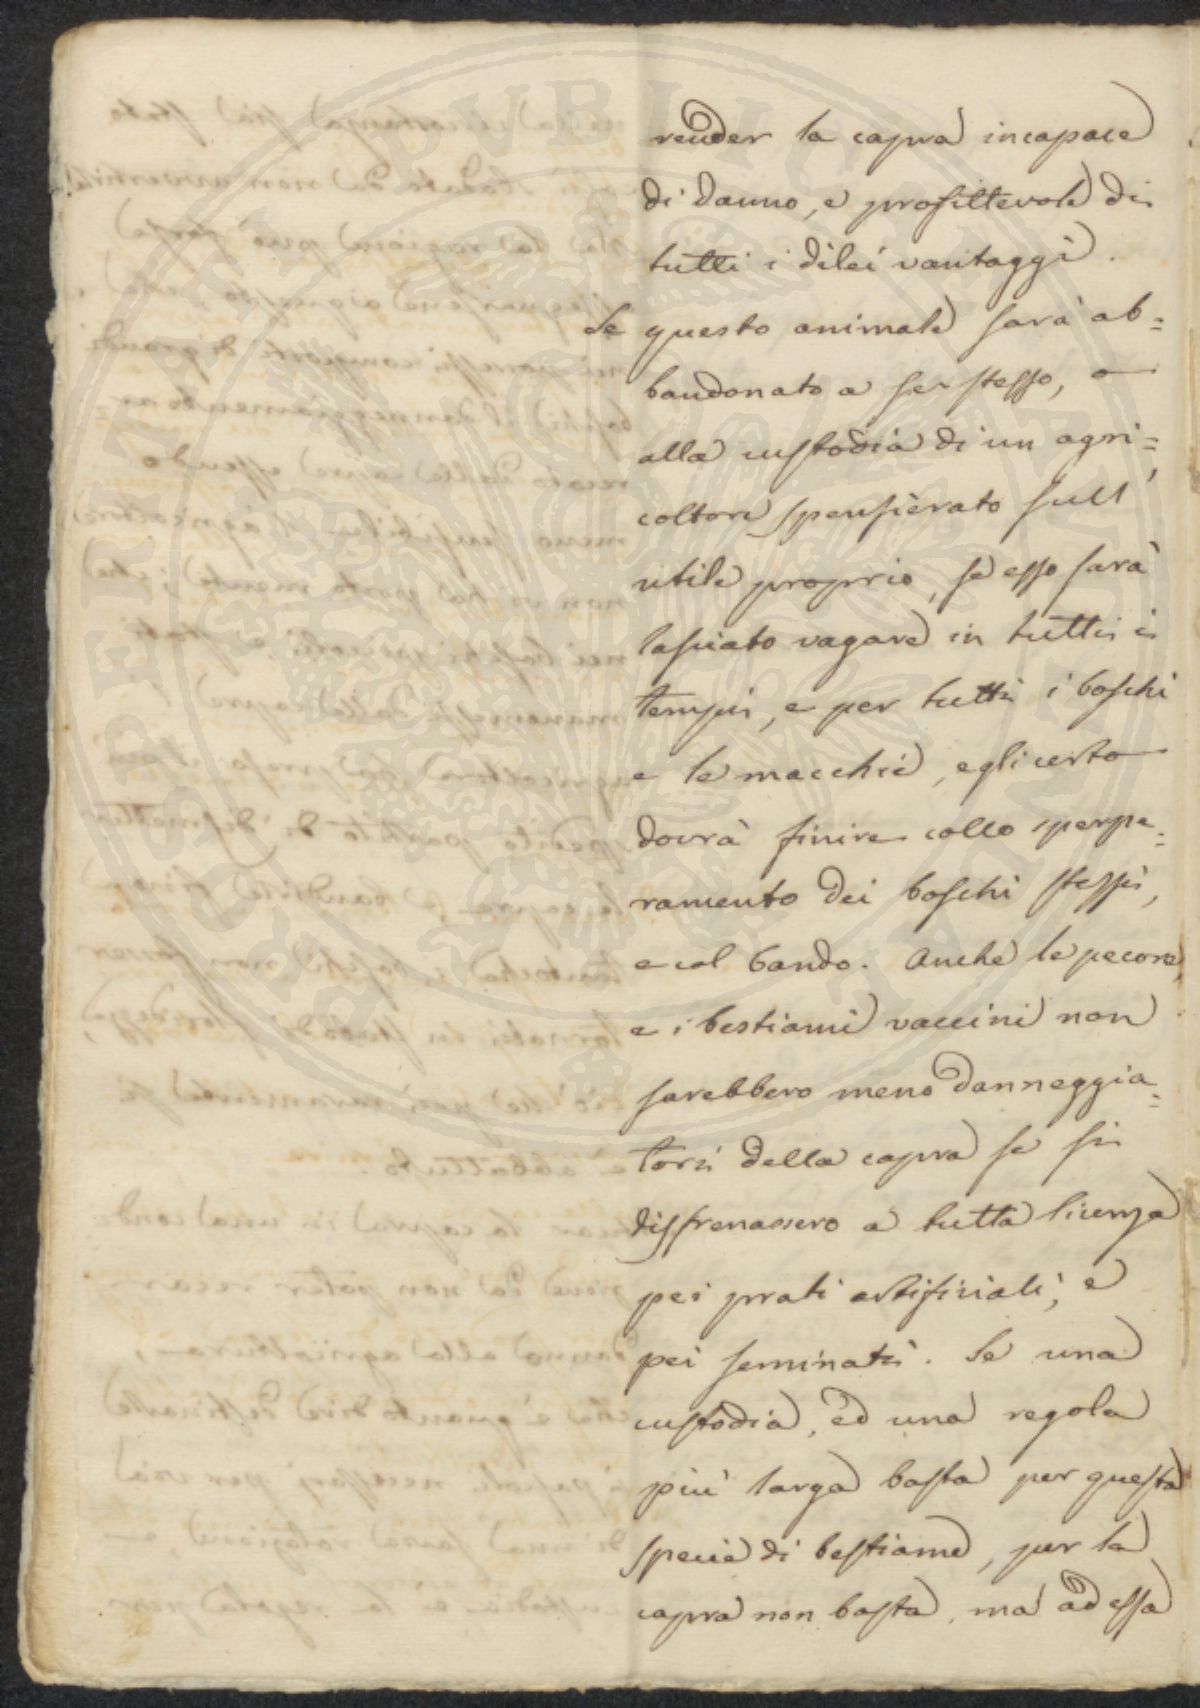 render la capra incapace
di danno, e profittevole di
tutti i dilei vantaggi.
Se questo animale sarà ab=
bandonato a se stesso, o
alla custodia di un agri=
coltore spensierato sull'
utile proprio, se esso sarà
lasciato vagare in tutti i
tempi, e per tutti i boschi
e le macchie, egli certo
dovrà finire collo sperpe=
ramento dei boschi stessi,
e col bando. Anche le pecore,
e i bestiami vaccini non
sarebbero meno danneggia=
tori della capra se si
disfrenassero a tutta licenza
pei prati artificiali, e
pei seminati. Se una
custodia, ed una regola
più larga basta per questa
specie di bestiame, per la
capra non basta, ma ad essa